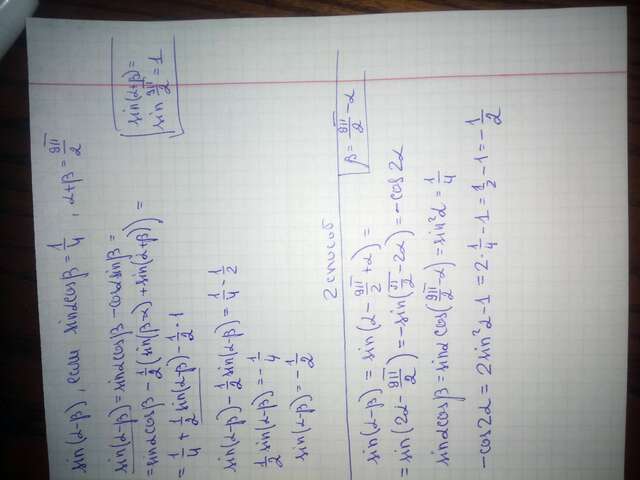 sin(α-β), если sinαcosβ = 1/4, α+β = 9π/2
sin(α-β) = sinαcosβ - cosαsinβ =
= sinαcosβ - 1/2(sin(β-α) + sin(α+β)) =
= 1/4 + 1/2 sin(α-β) - 1/2 · 1
sin(α+β) =
sin 9π/2 = 1
sin(α-β) - 1/2 sin(α-β) = 1/4 - 1/2
1/2 sin(α-β) = -1/4
sin(α-β) = -1/2
2 способ
sin(α-β) = sin(α - 9π/2 + α) =
β = 9π/2 - α
= sin(2α - 9π/2) = -sin(π/2 - 2α) = -cos2α
sinαcosβ = sinαcos(9π/2 - α) = sin²α = 1/4
-cos2α = 2sin²α - 1 = 2·1/4 - 1 = 1/2 - 1 = -1/2